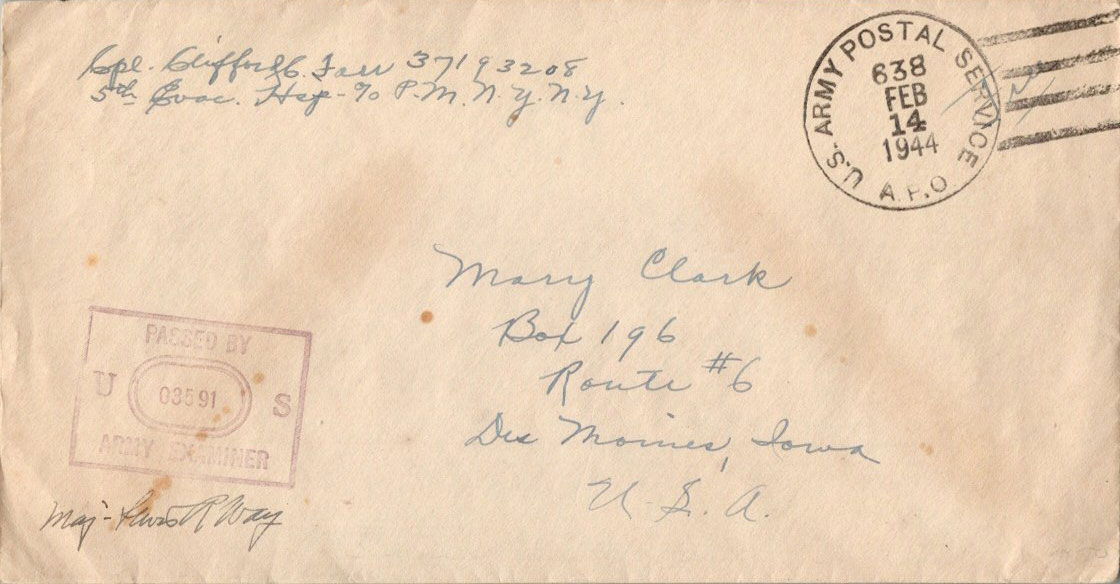 Cpl. Clifford C. Farr 37193208
5th Evac. Hsp - c/o P.M. N.Y. N.Y.
U.S. ARMY POSTAL SERVICE
638
FEB
14
1944
A.P.O.
Mary Clark
Box 196
Route #6
Des Moines, Iowa
U.S.A.
PASSED BY
U 03591 S
ARMY EXAMINER
Maj - R Way